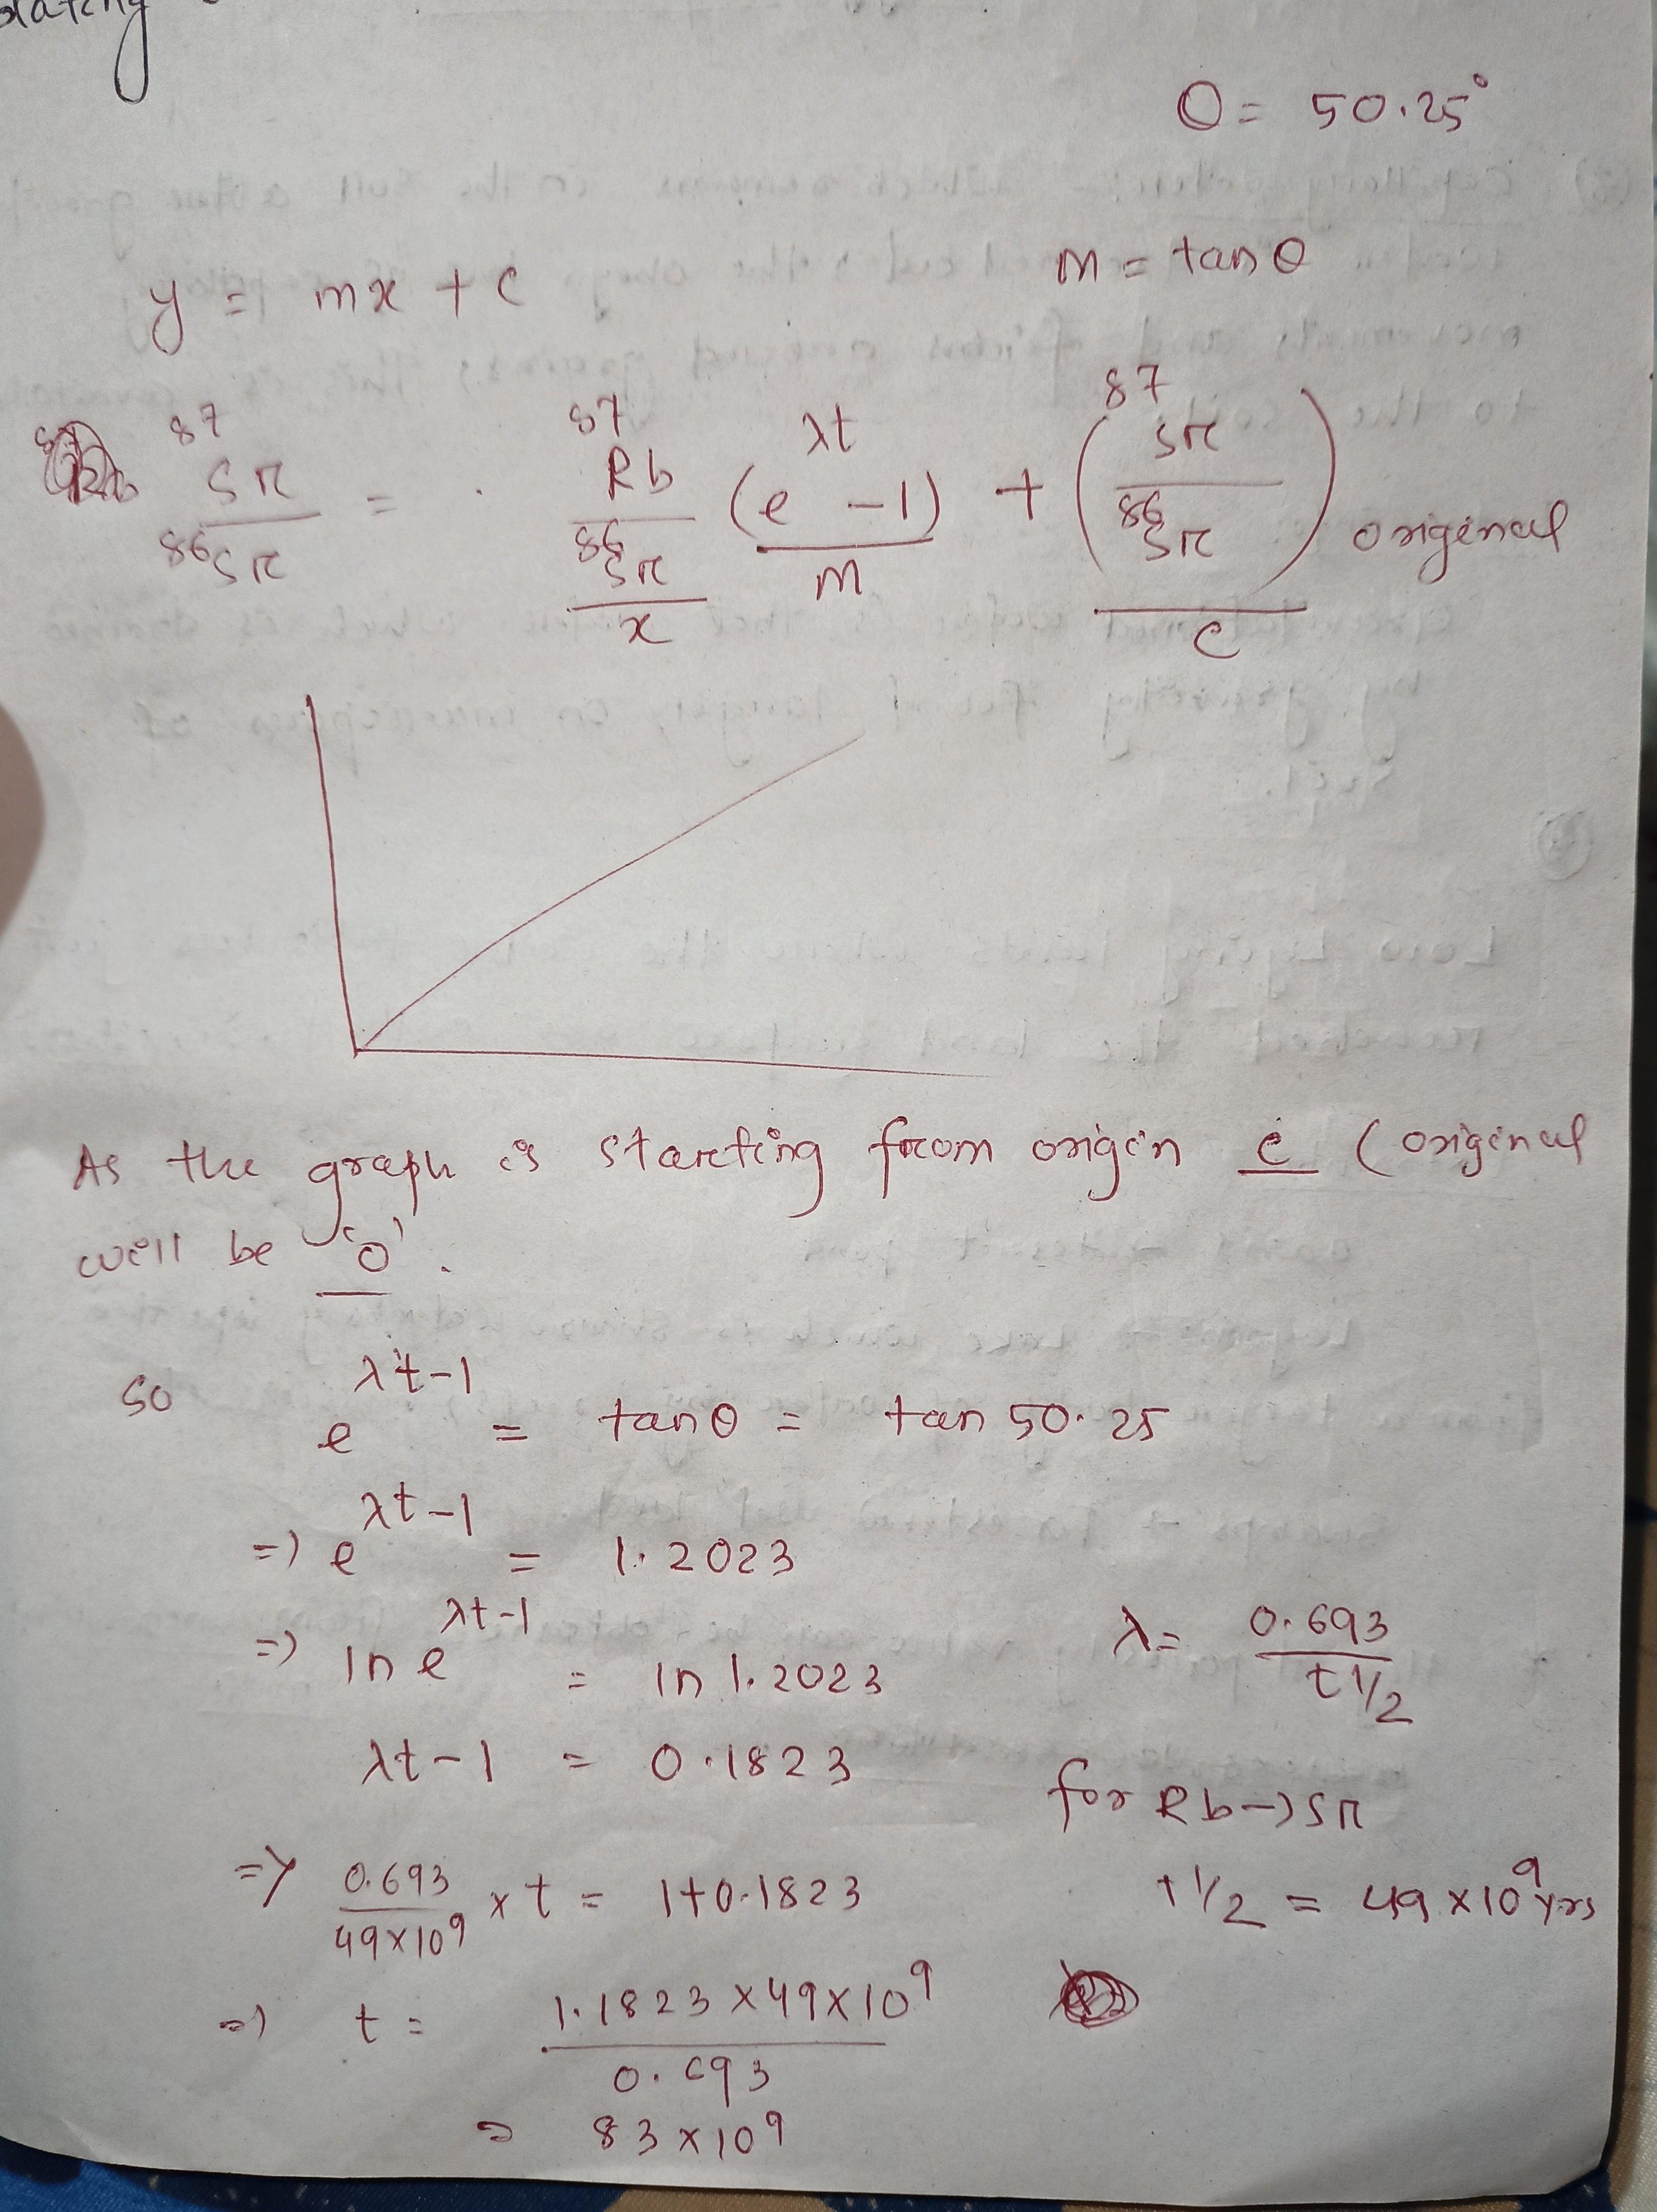 θ = 50.25°
y = mx + c m = tanθ
⁸⁷Sr/⁸⁶Sr = (⁸⁷Rb/⁸⁶Sr) (e^λt - 1) + (⁸⁷Sr/⁸⁶Sr) original
x m c
As the graph is starting from origin c (original
will be '0'.
so e^λt-1 = tanθ = tan 50.25
=> e^λt-1 = 1.2023
=> ln e^λt-1 = ln 1.2023 λ = 0.693/t1/2
λt-1 = 0.1823
for Rb->Sr
=> 0.693/49×10⁹ × t = 1+0.1823 t1/2 = 49×10⁹ yrs
=> t = 1.1823×49×10⁹/0.693
= 83×10⁹